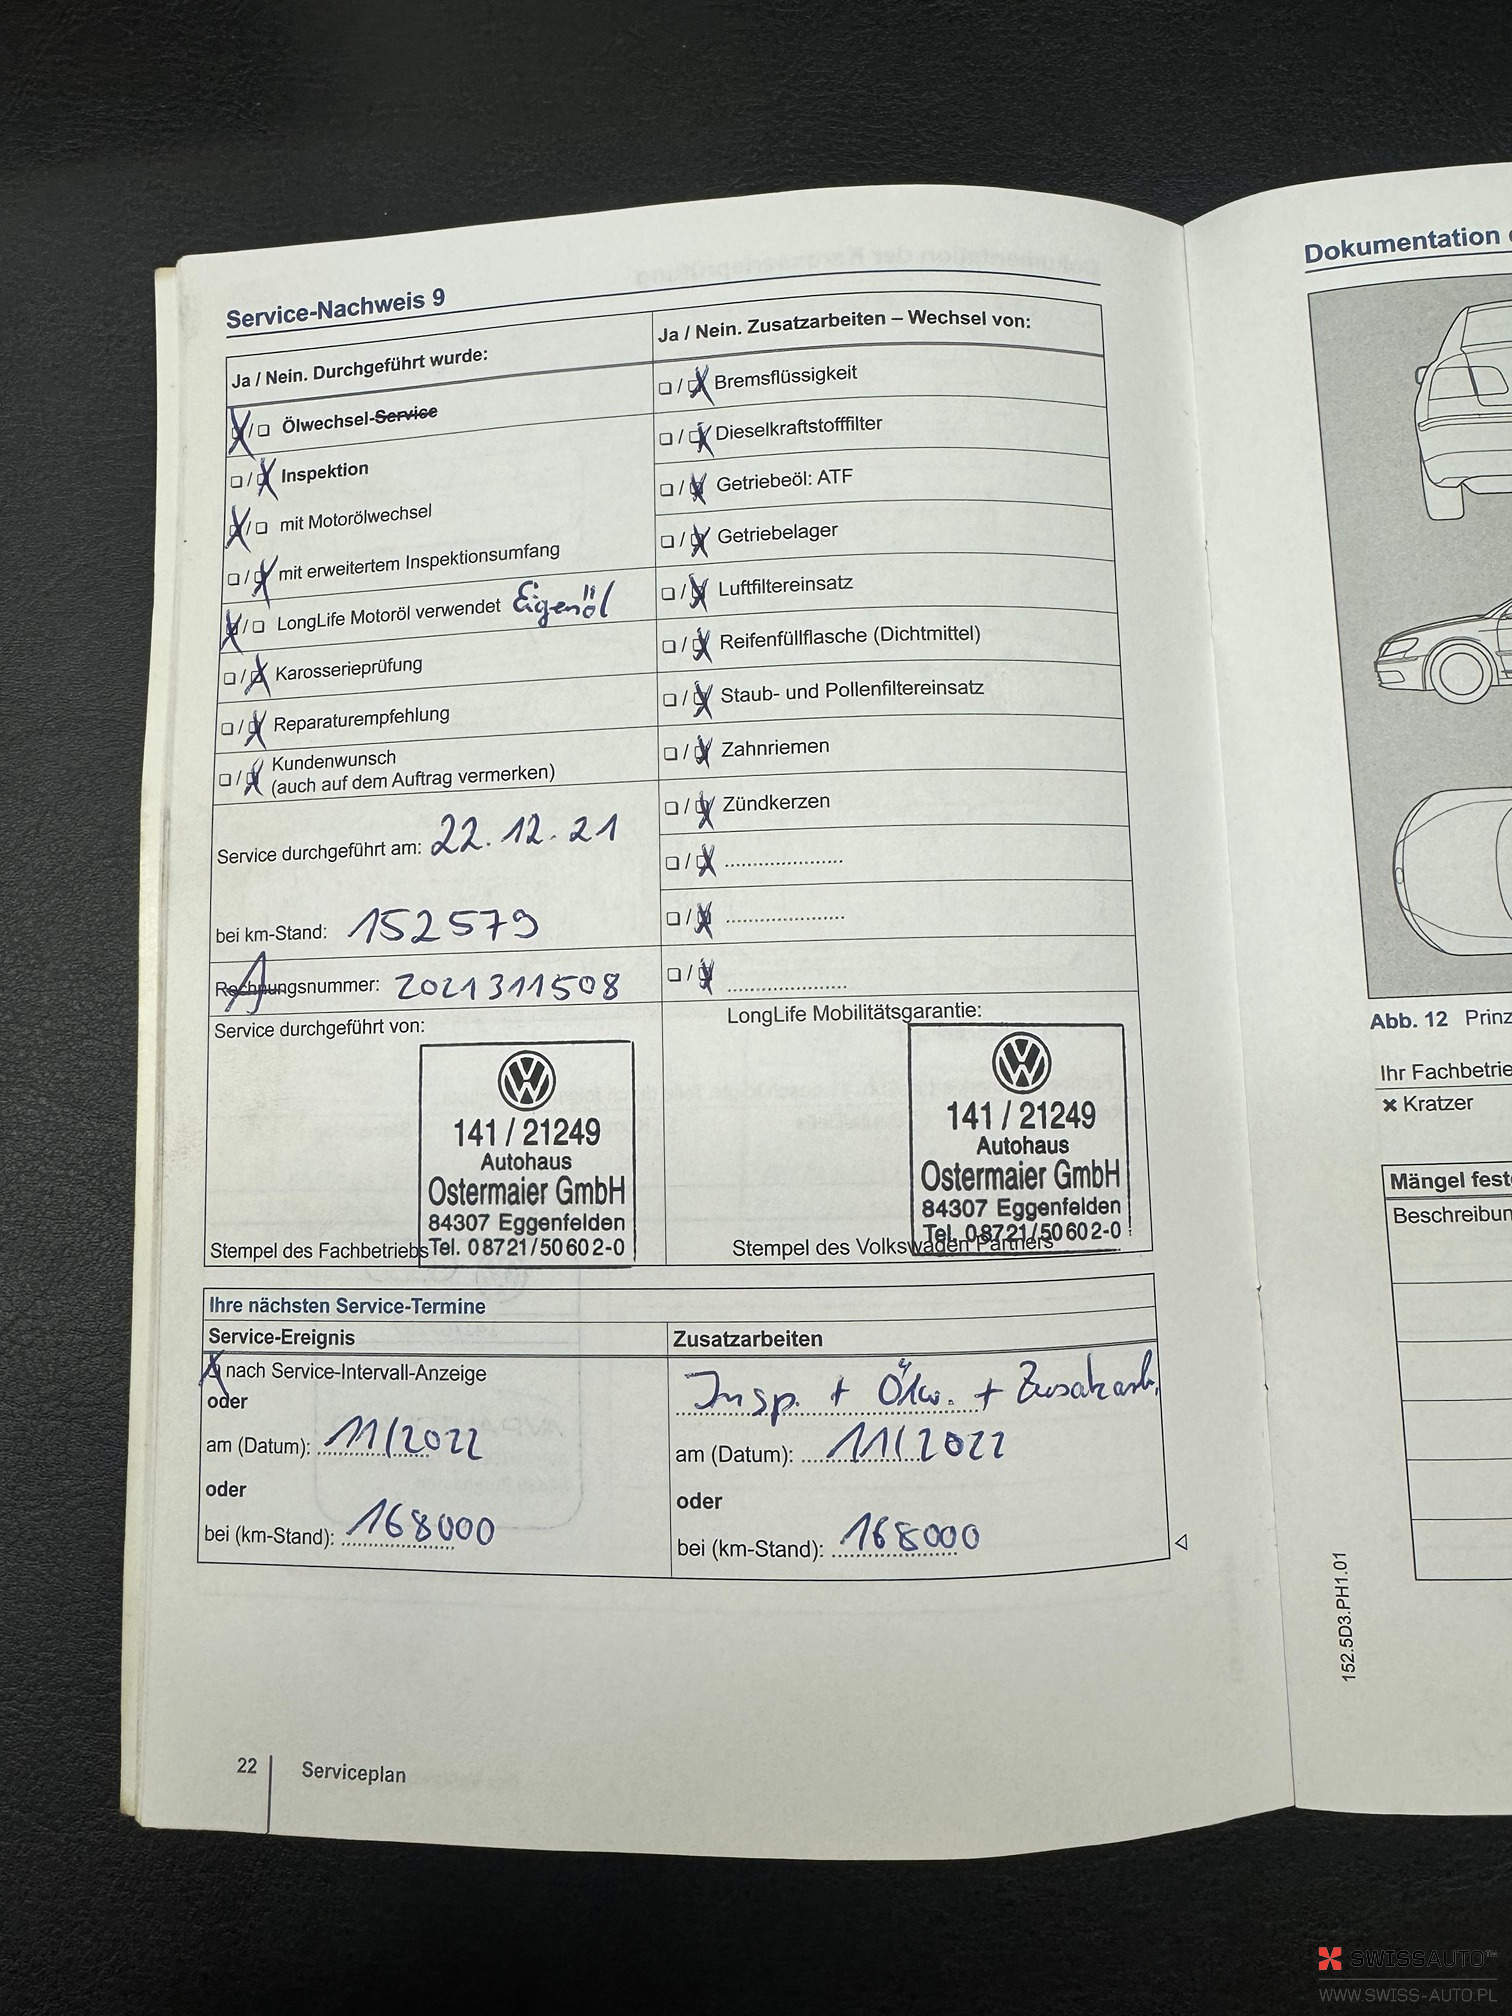 Service-Nachweis 9
Ja / Nein. Durchgeführt wurde:
X/☐ Ölwechsel-Service
☐/X Inspektion
X/☐ mit Motorölwechsel
☐/X mit erweitertem Inspektionsumfang
X/☐ LongLife Motoröl verwendet Eigenöl
☐/X Karosserieprüfung
☐/X Reparaturempfehlung
☐/X Kundenwunsch
(auch auf dem Auftrag vermerken)
Service durchgeführt am: 22.12.21
bei km-Stand: 152579
A Rechnungsnummer: 2021311508
Service durchgeführt von:
141 / 21249
Autohaus
Ostermaier GmbH
84307 Eggenfelden
Tel. 08721/50602-0
Stempel des Fachbetriebs
Ja / Nein. Zusatzarbeiten – Wechsel von:
☐/X Bremsflüssigkeit
☐/X Dieselkraftstofffilter
☐/X Getriebeöl: ATF
☐/X Getriebelager
☐/X Luftfiltereinsatz
☐/X Reifenfüllflasche (Dichtmittel)
☐/X Staub- und Pollenfiltereinsatz
☐/X Zahnriemen
☐/X Zündkerzen
☐/X .....................
☐/X .....................
☐/X .....................
LongLife Mobilitätsgarantie:
141 / 21249
Autohaus
Ostermaier GmbH
84307 Eggenfelden
Tel. 08721/50602-0
Stempel des Volkswagen Partners
Ihre nächsten Service-Termine
Service-Ereignis
X nach Service-Intervall-Anzeige
oder
am (Datum): 11/2022
oder
bei (km-Stand): 168000
Zusatzarbeiten
Insp. + Ölw. + Zusatzarb.
am (Datum): 11/2022
oder
bei (km-Stand): 168000
22 Serviceplan
Dokumentation
Abb. 12 Prinz
Ihr Fachbetrie
✖ Kratzer
Mängel fest
Beschreibun
152.5D3.PH1.01
SWISSAUTO™
WWW.SWISS-AUTO.PL